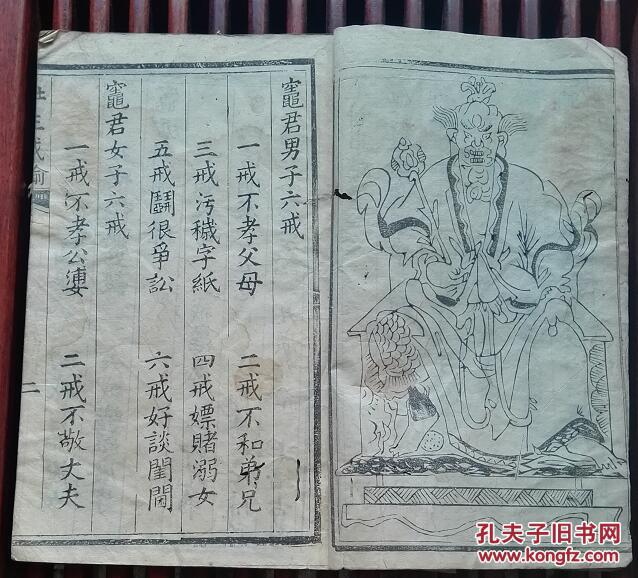 竈君男子六戒
一戒不孝父母 二戒不和弟兄
三戒污穢字紙 四戒嫖賭溺女
五戒鬪很爭訟 六戒好談閨閫
竈君女子六戒
一戒不孝公婆 二戒不敬丈夫
二
孔夫子旧书网
www.kongfz.com